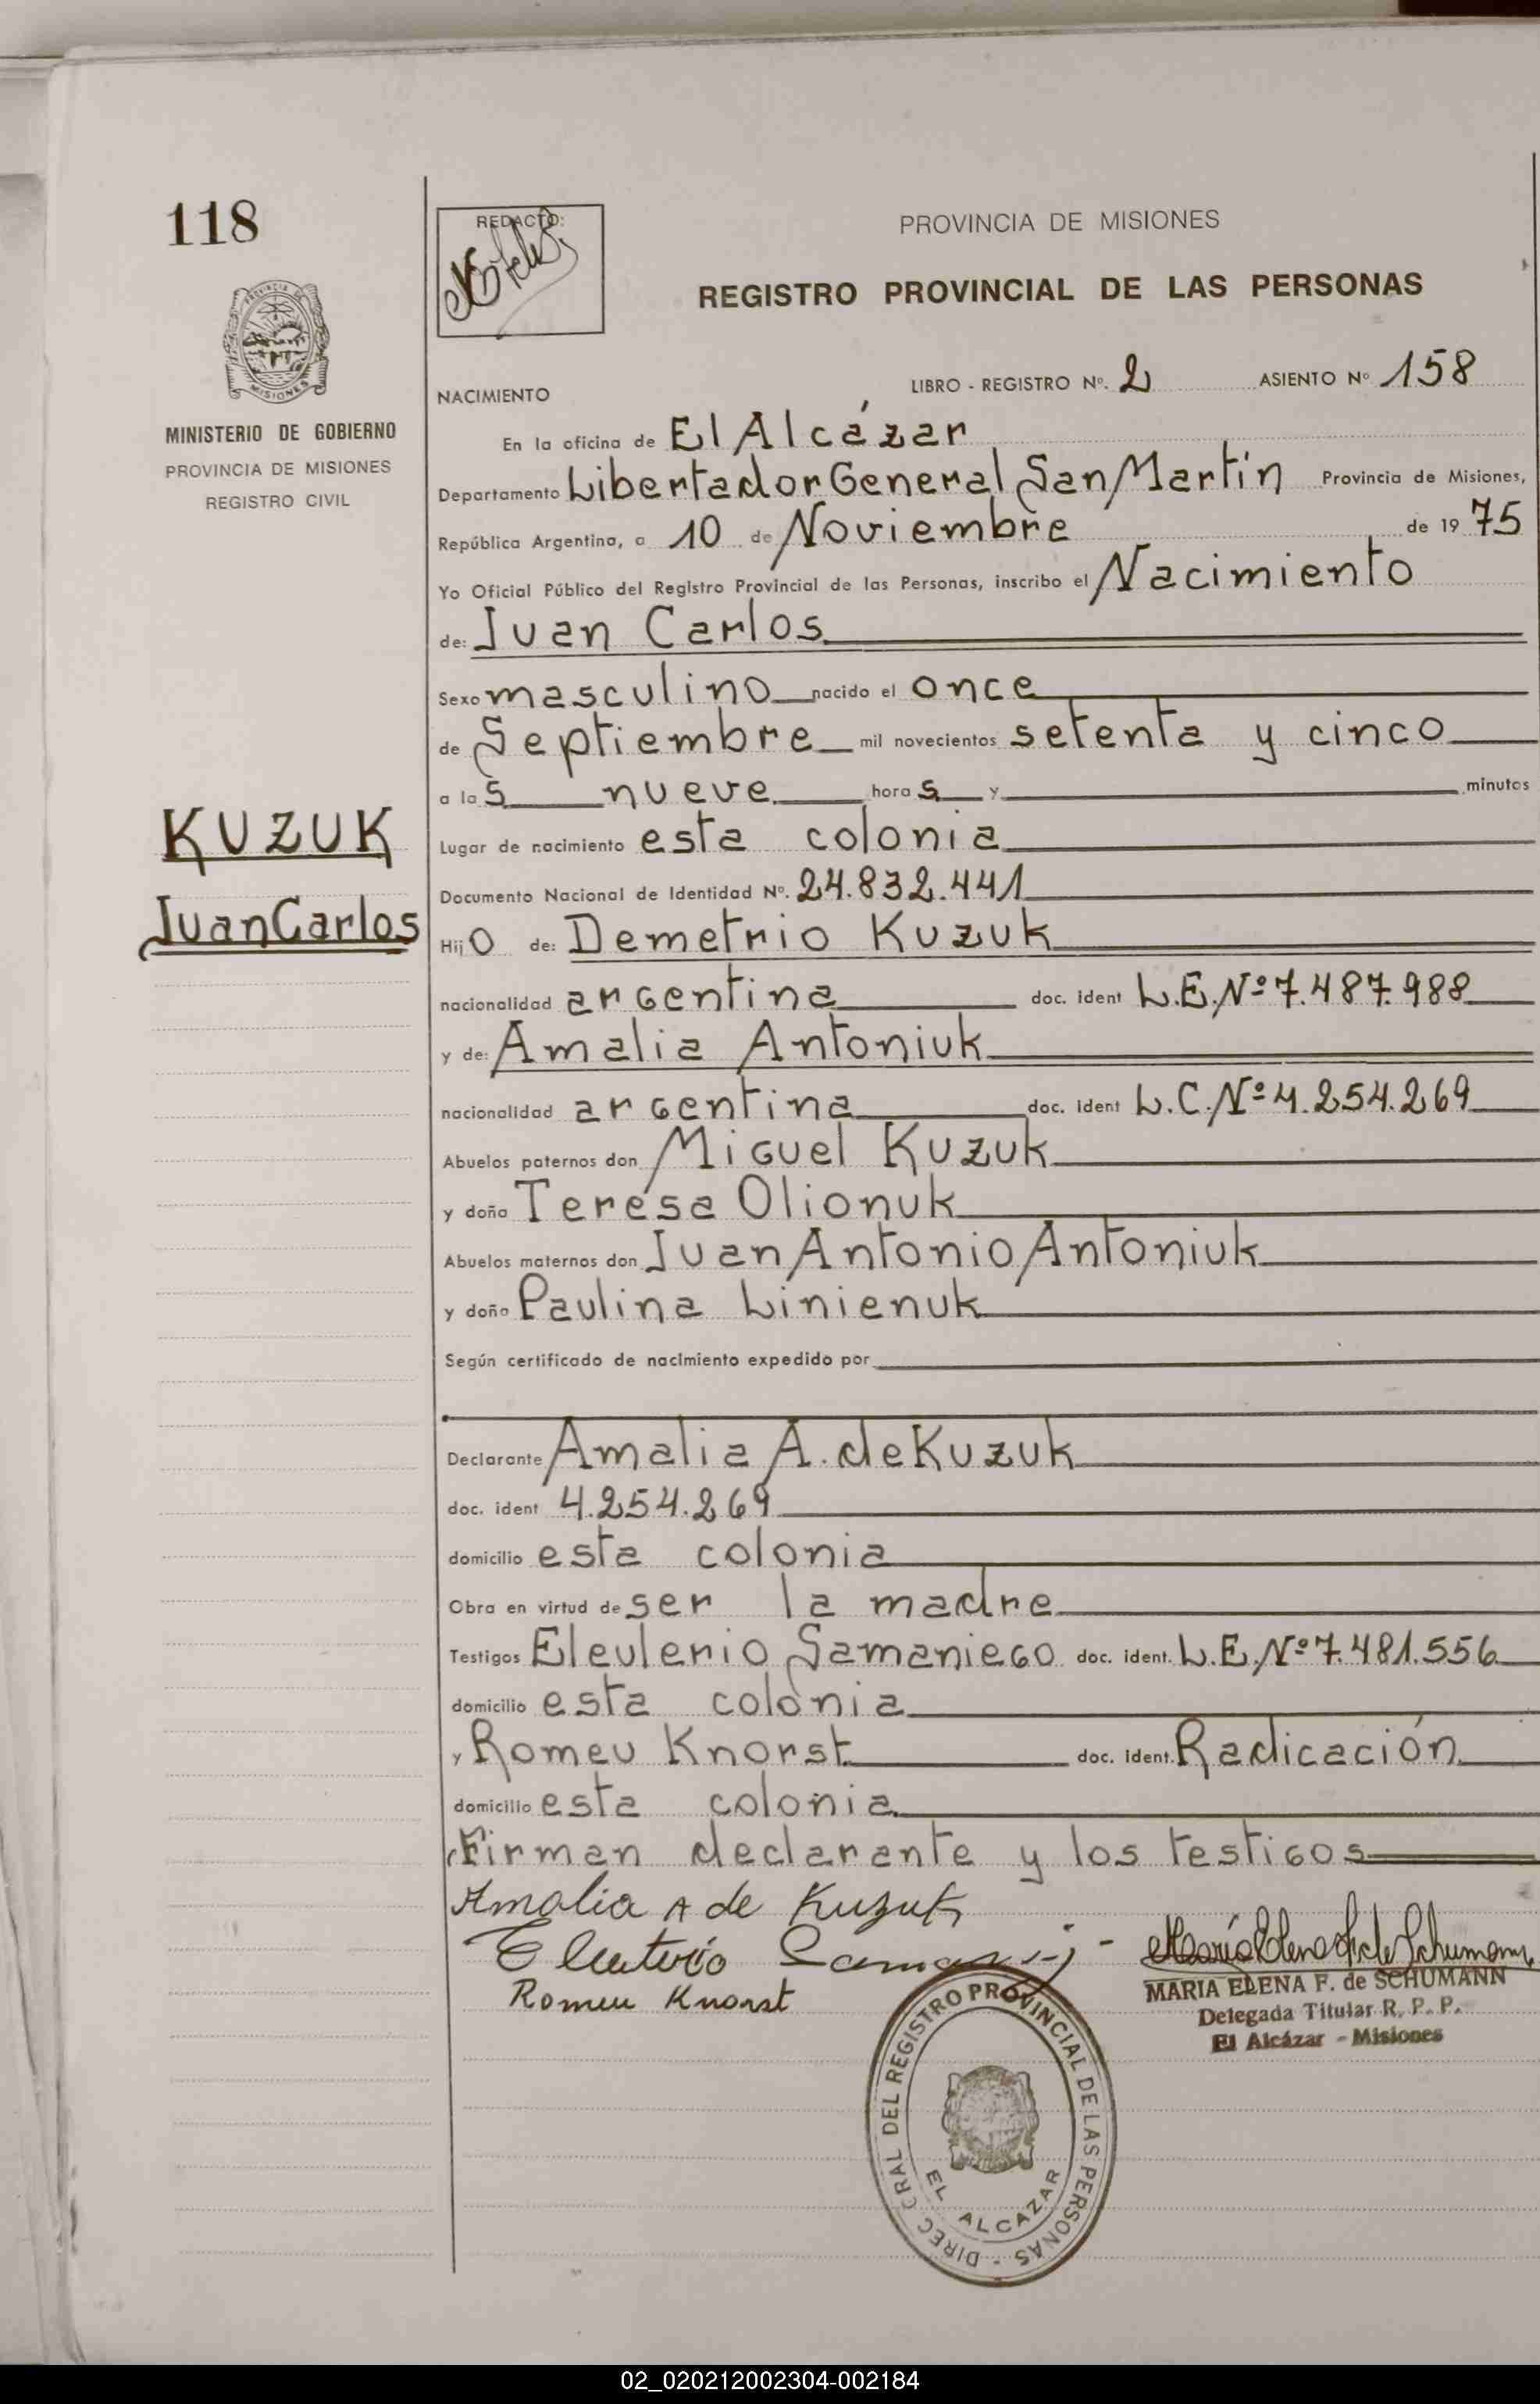 118
REDACTO:
PROVINCIA DE MISIONES
REGISTRO PROVINCIAL DE LAS PERSONAS
MINISTERIO DE GOBIERNO
PROVINCIA DE MISIONES
REGISTRO CIVIL
NACIMIENTO LIBRO - REGISTRO Nº. 2 ASIENTO Nº 158
En la oficina de El Alcázar
Departamento Libertador General San Martín Provincia de Misiones,
República Argentina, a 10 de Noviembre de 1975
Yo Oficial Público del Registro Provincial de las Personas, inscribo el Nacimiento
de: Juan Carlos
Sexo masculino nacido el once
de Septiembre mil novecientos setenta y cinco
a las nueve horas y minutos
KUZUK
Juan Carlos
Lugar de nacimiento esta colonia
Documento Nacional de Identidad Nº. 24.832.441
Hijo de: Demetrio Kuzuk
nacionalidad argentina doc. ident L.E.Nº 7.487.988
y de: Amalia Antoniuk
nacionalidad argentina doc. ident L.C.Nº 4.254.269
Abuelos paternos don Miguel Kuzuk
y doña Teresa Olionuk
Abuelos maternos don Juan Antonio Antoniuk
y doña Paulina Linienuk
Según certificado de nacimiento expedido por
Declarante Amalia A. de Kuzuk
doc. ident 4.254.269
domicilio esta colonia
Obra en virtud de ser la madre
Testigos Eleulerio Samaniego doc. ident. L.E.Nº 7.481.556
domicilio esta colonia
y Romeu Knorst doc. ident. Radicación
domicilio esta colonia
Firman declarante y los testigos
Amalia A de Kuzuk
Eleuterio
Romeu Knorst
María Elena F. de Schumann
MARIA ELENA F. de SCHUMANN
Delegada Titular R. P. P.
El Alcázar - Misiones
DIREC GRAL DEL REGISTRO PROVINCIAL DE LAS PERSONAS -
EL ALCAZAR
02_020212002304-002184